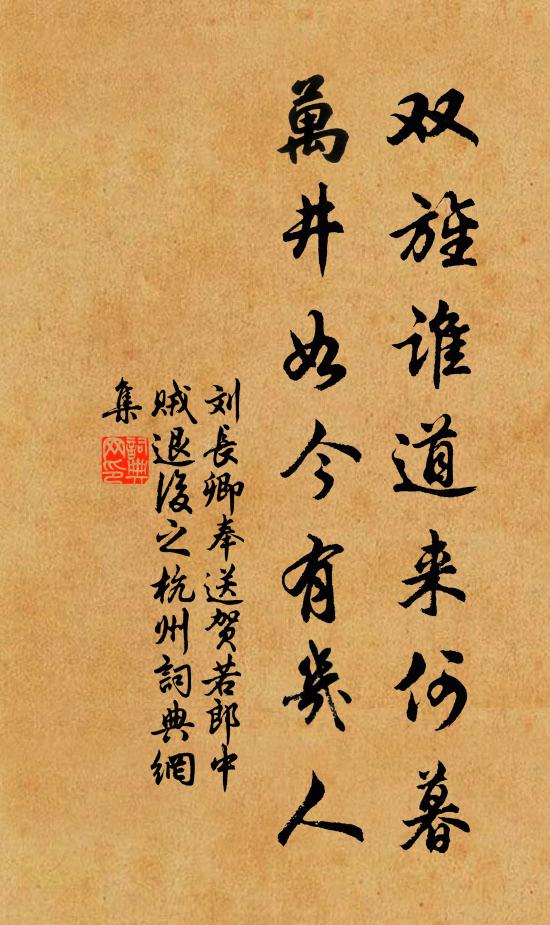 双旌谁道来何暮
萬井如今有幾人
刘長卿奉送贺若郎中
贼退後之杭州詞典網
集
詞典网印